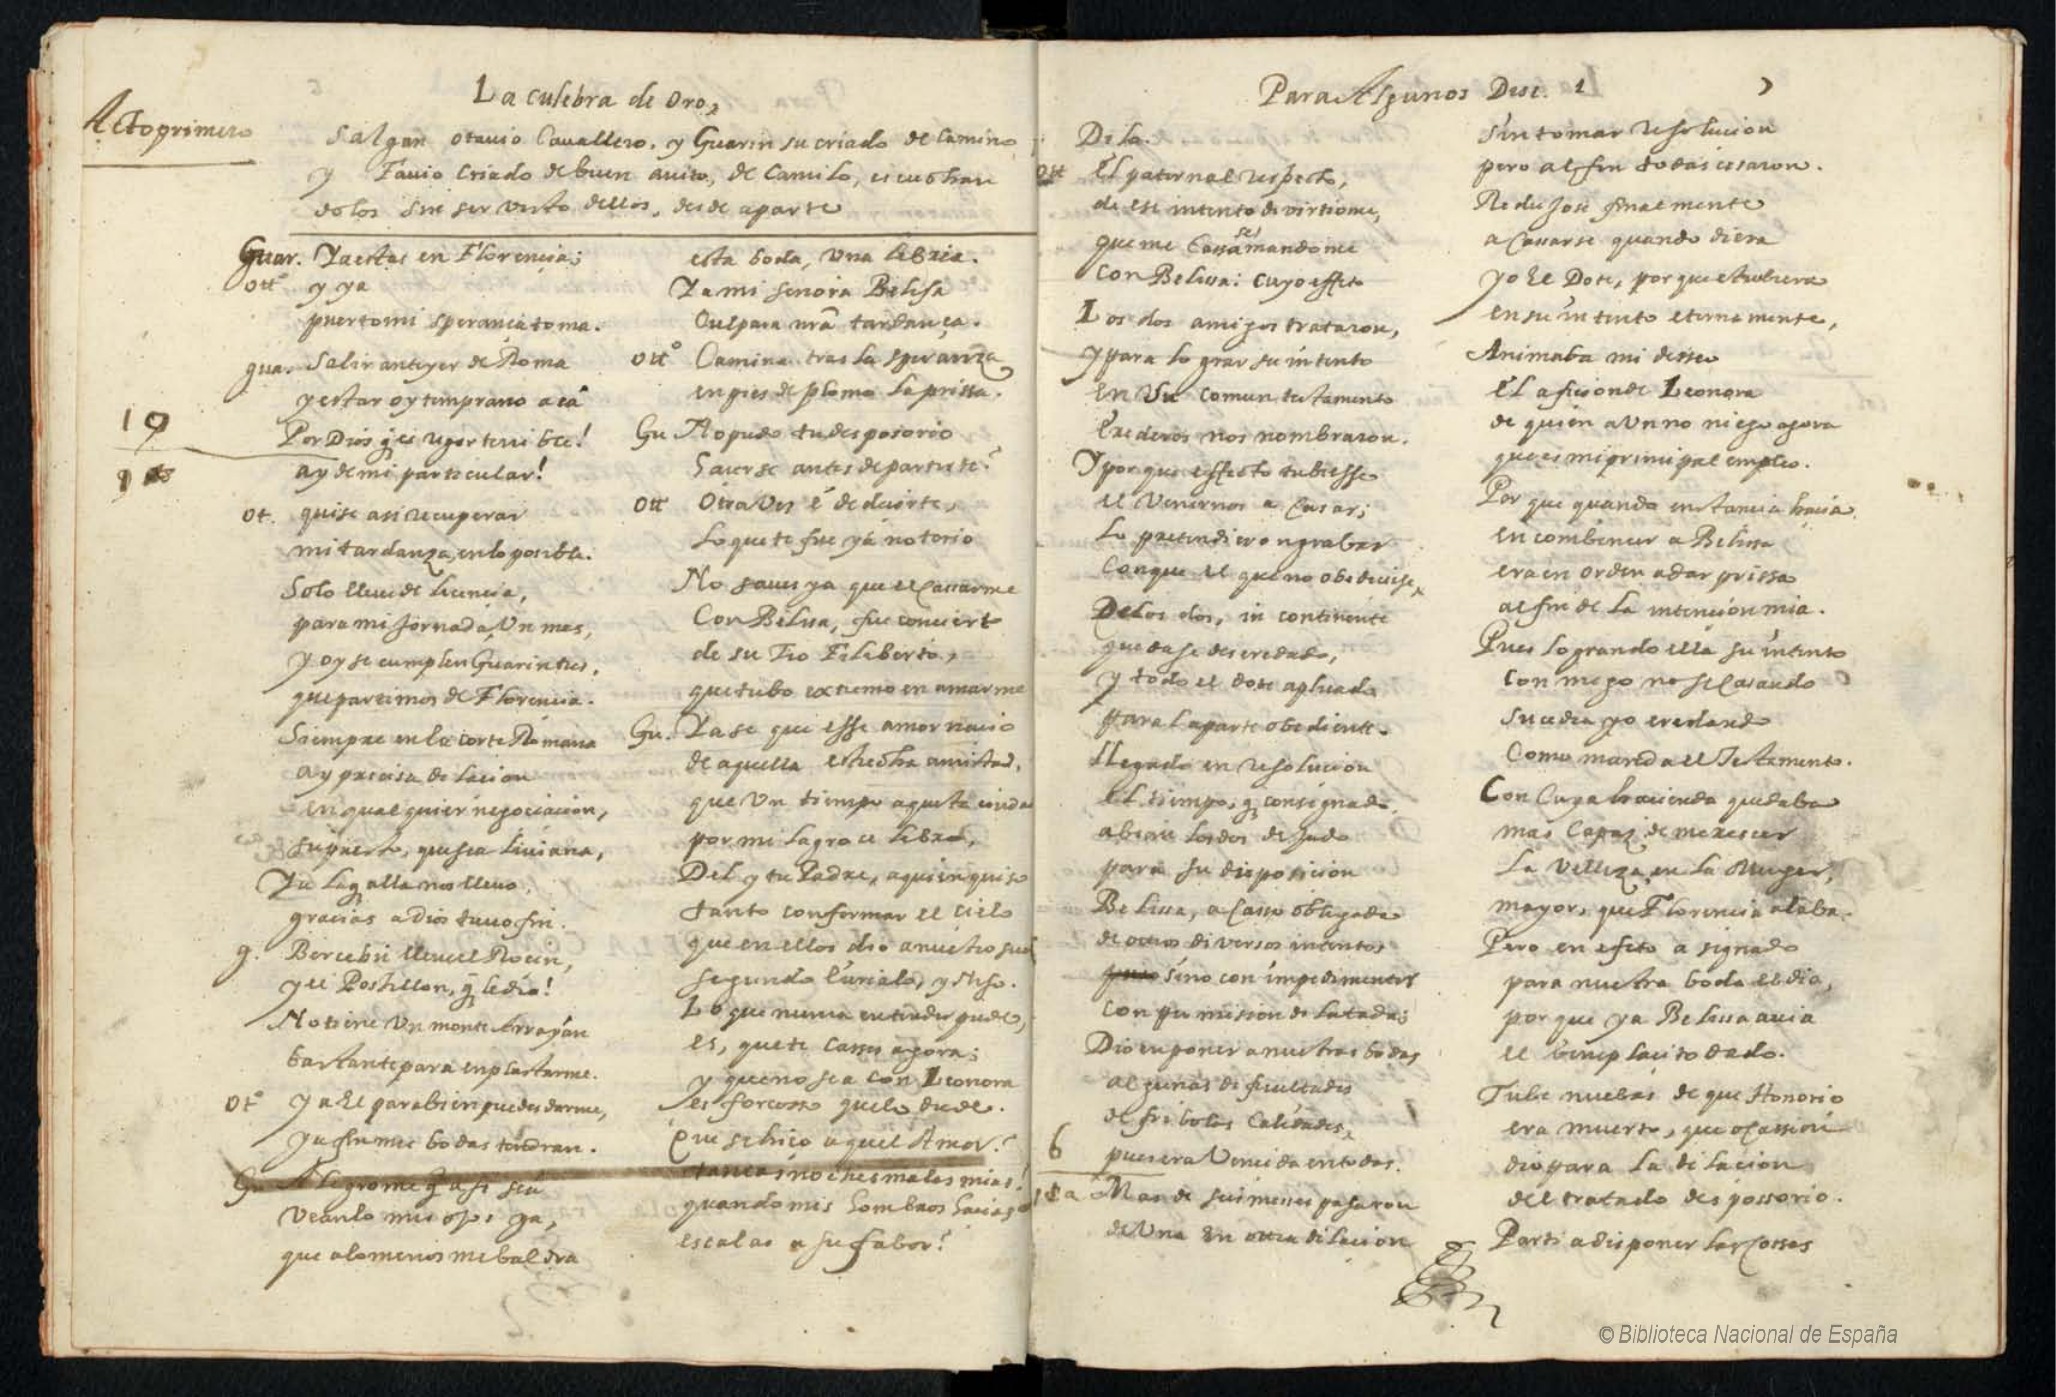 La culebra de Oro,
Acto primero
Salgan otauio Cauallero, y Guarin su criado de Camino
y Fauio Criado de buen auito, de Camilo, escuchan
dolos sin ser visto dellos, desde aparte
Guar. Ya estas en Florencia;
ott.º y ya
puerto mi sperança toma.
gua. Salir antiyer de Roma
y estar oy temprano acá
10
Por Dios q̃ es rigor terrible!
ay de mi particular!
ot. quise asi recuperar
mi tardanza, en lo posible.
Solo lleue de licencia,
para mi Jornada, Un mes,
y oy se cumplen Guarin tres,
que partimos de Florencia.
Siempre en la corte Romana
ay precisa dilacion
en qualquier negociacion,
supuesto, que sea liuiana,
Ya la q̃ alla nos lleuo,
gracias a dios tuuo fin.
g. Bercebu lleue el Rocin,
y el Postillon, q̃ le dio!
No tiene Un monte Arrayan
bastante para enplastarme.
ot.º Ya El parabien puedes darme,
ya fin mis bodas tendran.
Gu. Alegrome q̃ asi sea
Veanlo mis ojos ya,
que alomenos me baldra
esta boda, Una librea.
Ya mi señora Belisa
Culpara nrã tardança.
ott.º Camina tras la speranza
en pies de plomo la prissa.
Gu No pudo tu desposorio
hauerse antes de partirte?
ott Otra Ves é de decirte,
lo que te fue yá notorio
No saues ya que el Cassarme
Con Belissa, fue concierto
de su Tio Filiberto,
que tubo extremo en amarme
Gu. Ya se que esse amor nacio
de aquella estrecha amistad,
que Un tiempo aquesta ciudad
por milagro celebro,
Del y tu Padre, aquien quiso
tanto conformar el cielo
que en ellos dio a nuestro suelo
segundo Eurialo, y Niso.
Lo que nunca entender pude,
es, que te cases agora;
y que no sea con Leonora
es forcosso que lo dude.
Que se hiço aquel Amor?
tantas noches malas mias!
quando mis hombros hacias
escalas a su fabor!
Para Algunos Disc. 1
Dilo.
ott El paternal respecto,
de ese intento divirtiome,
que me Cassase mandome
con Belissa: cuyo effeto
Los dos amigos trataron,
y para lograr su intento
en Un comun testamento
Erederos nos nombraron.
Y porque effecto tubiesse
el Venirnos a Casar;
lo pretendieron grabar
conque el que no obedeciese,
De los dos, in continente
quedase deseredado,
y todo el dote aplicado
para la parte obediente.
Llegado en resolucion
el tiempo, q̃ consignado
abian los dos dejado
para su disposicion
Belissa, acasso obligada
de otros diversos intentos
sino con impedimentos
con permision dilatada;
Dio en poner a nuestras bodas
algunas dificultades
de fribolas Calidades,
6
pues era Vencida en todas.
Mas de seis meses pasaron
de Una en otra dilacion
sin tomar resolucion
pero al fin todas cesaron.
Redujose finalmente
a Cassarse quando diera
yo El Dote, porque estubiera
en su intento eternamente,
Animaba mi desseo
El aficion de Leonora
de quien aUn no niego agora
que es mi principal empleo.
Por que quando instancia hacia
en combencer a Belissa
era en orden a dar prissa
al fin de la intencion mia.
Pues logrando ella su intento
con migo no se Casando
sucedia yo eredando
Como manda el Testamento.
Con Cuya hacienda quedaba
mas Capaz de merescer
la Velleza, en la Muger,
mayor, que Florencia alaba.
Pero en efeto asignado
para nuestra boda el dia,
por que ya Belissa auia
el beneplacito dado.
Tube nuebas de que Honorio
era muerto, que ocassion
dio para la dilacion
del tratado despossorio.
Parti a disponer las Cossas
© Biblioteca Nacional de España